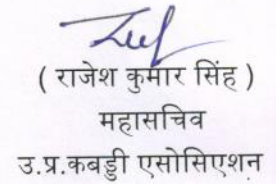 ( राजेश कुमार सिंह )
महासचिव
उ.प्र.कबड्डी एसोसिएशन